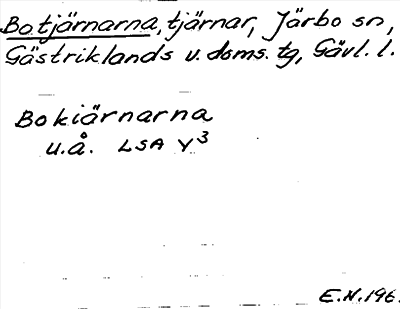 Botjärnarna, tjärnar, Järbo sn,
Gästriklands v. doms. tg, Gävl. l.
Bokiärnarna
u.å. LSA Y3
E.N. 196